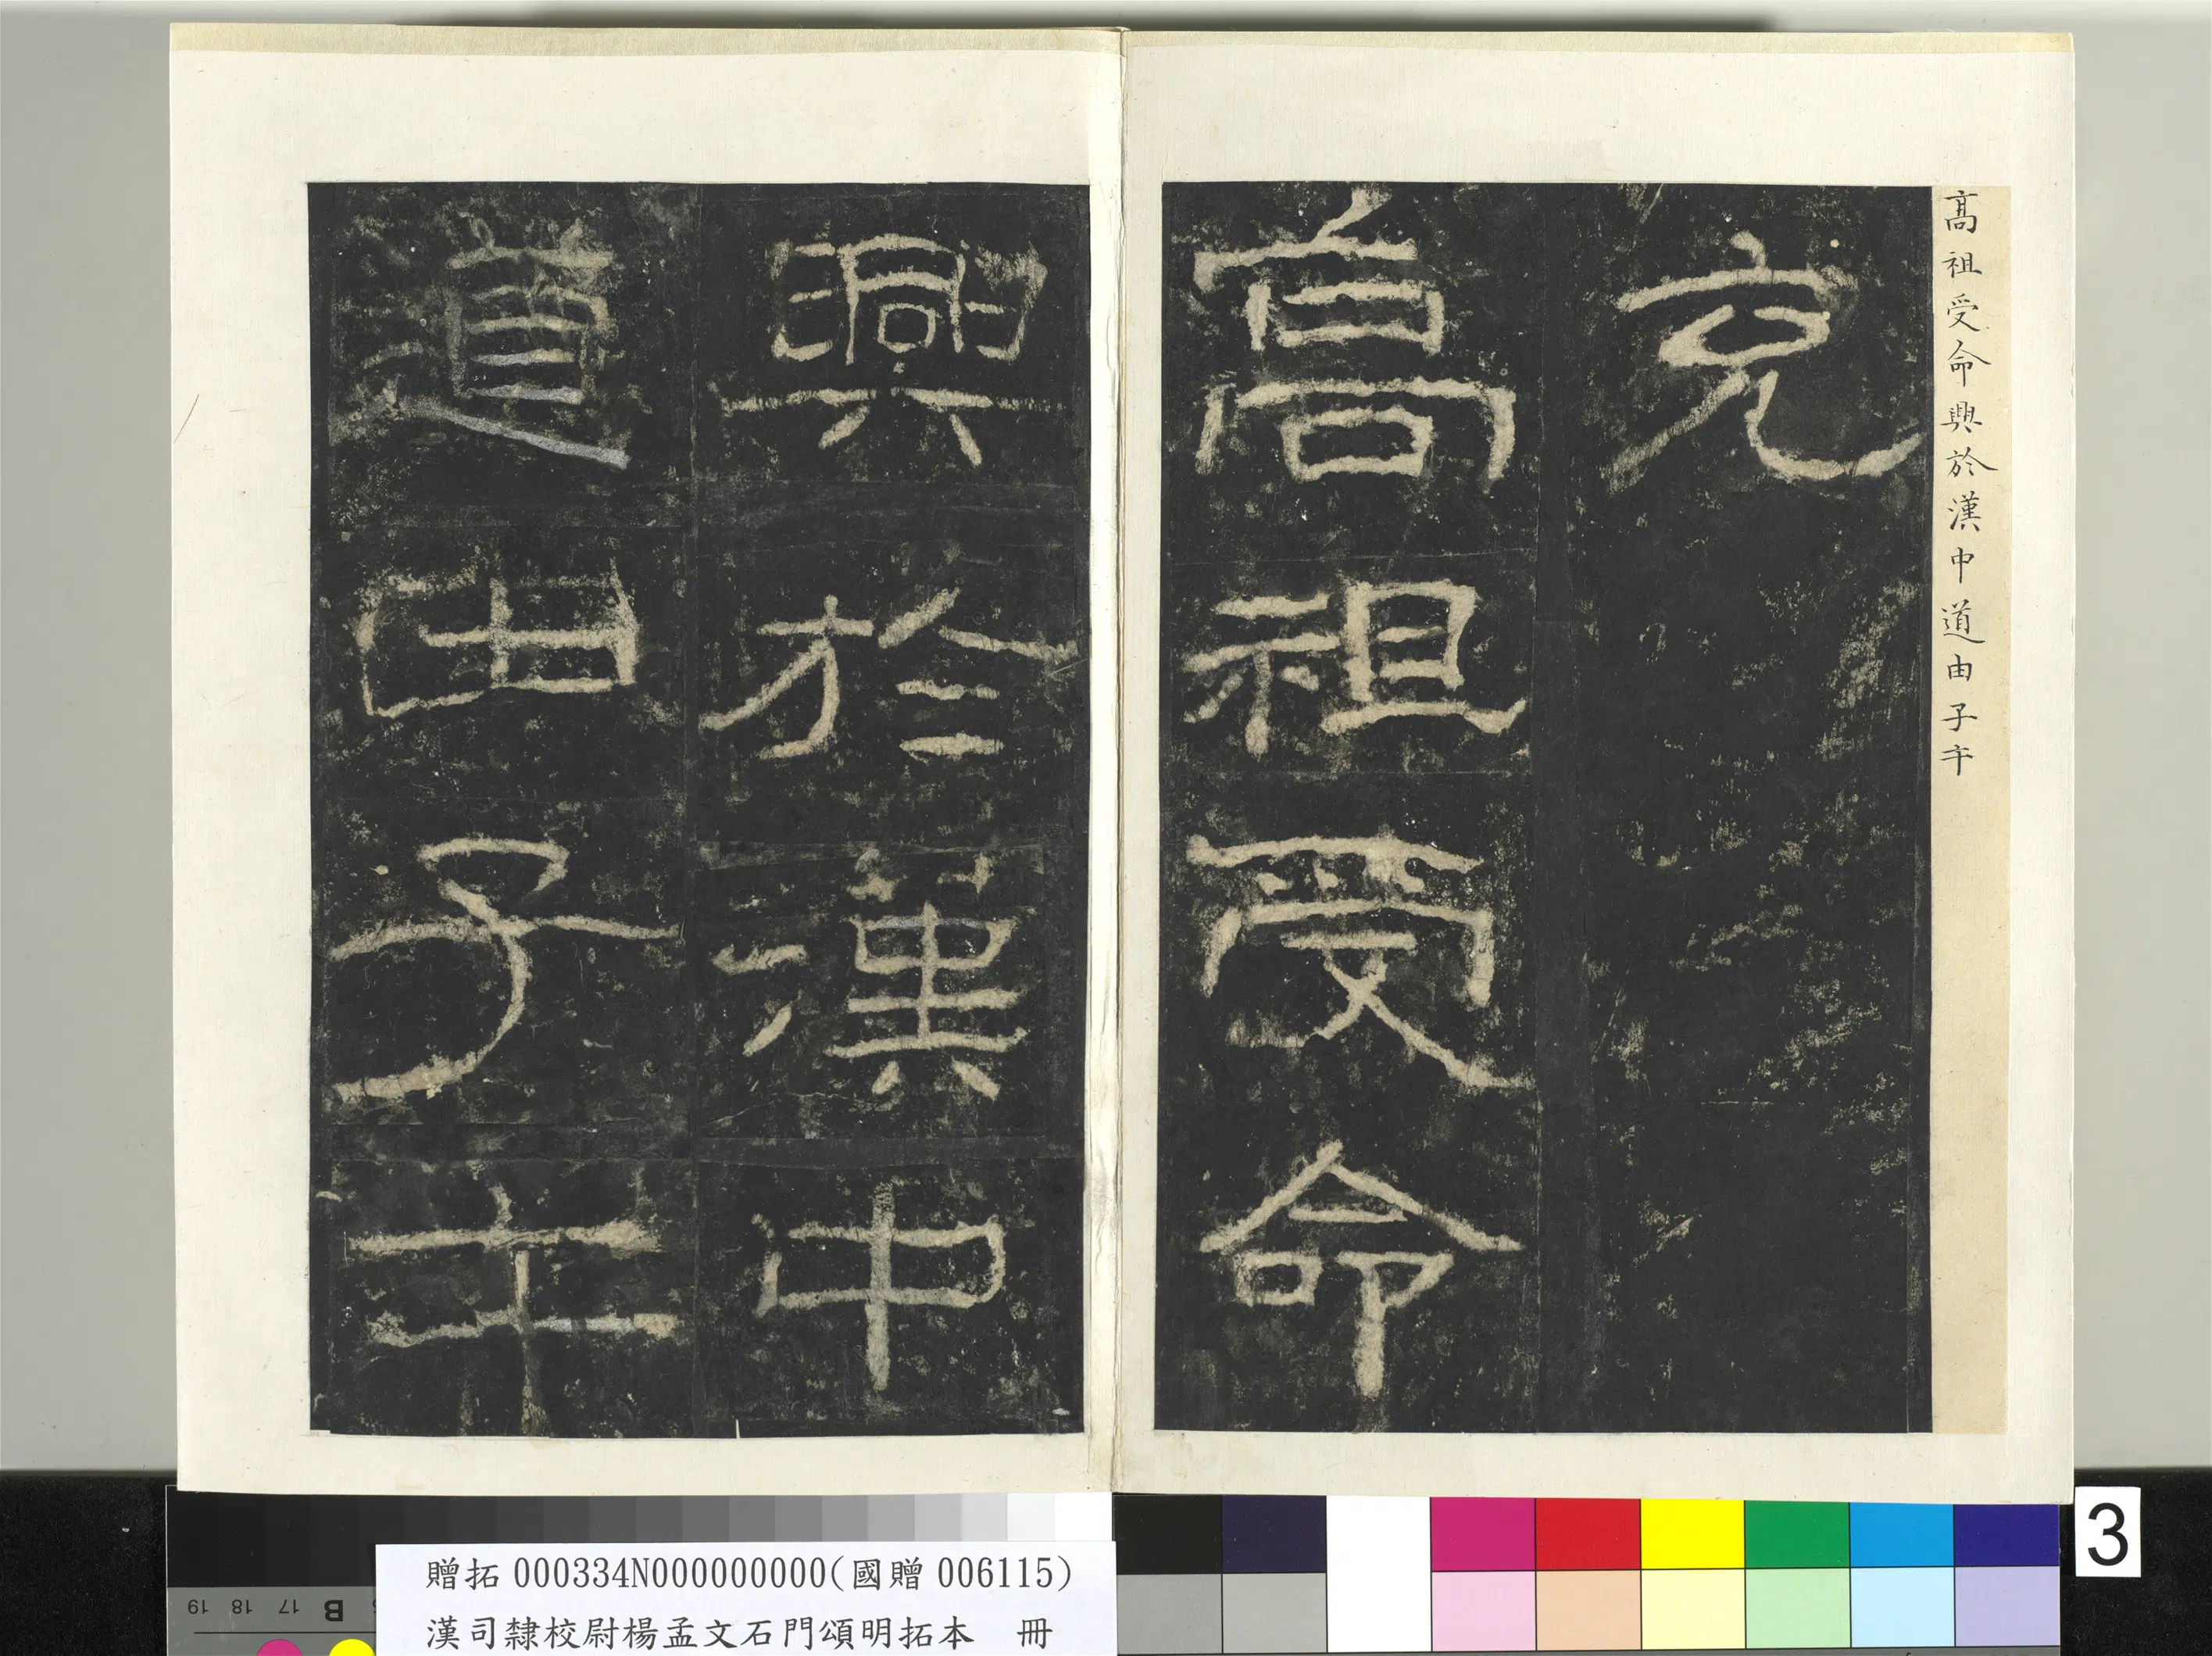 高祖受命興於漢中道由子午
充
高祖受命
興於漢中
道由子午
3
贈拓000334N000000000(國贈006115)
漢司隸校尉楊孟文石門頌明拓本 冊
19 18 17 B